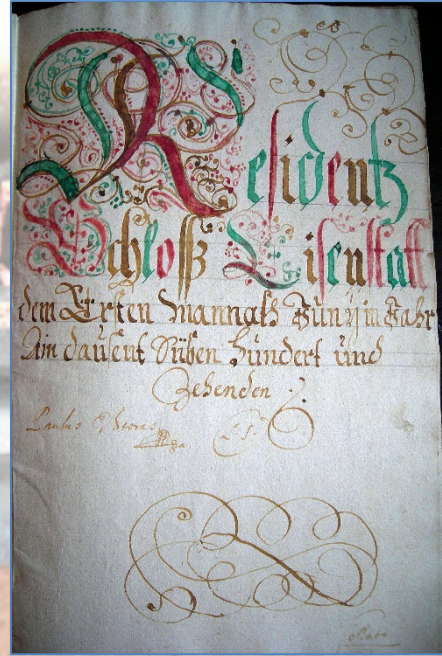 Residentz
Schloß Eisenstatt
dem Ersten Mannaths Junÿ im Jahr
Ain dausent Süben Hundert und
Zehenden
Paulus
L. S.